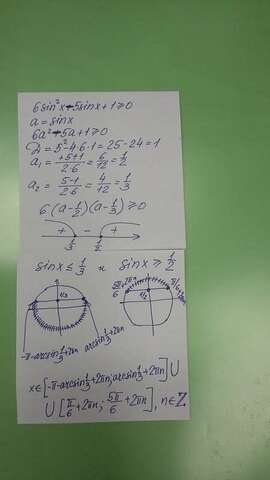 6sin²x-5sinx+1≥0
a=sinx
6a²-5a+1≥0
D=5²-4·6·1=25-24=1
a₁=(+5+1)/(2·6)=6/12=1/2
a₂=(5-1)/(2·6)=4/12=1/3
6(a-1/2)(a-1/3)≥0
+ - +
1/3 1/2
sinx≤1/3 и sinx≥1/2
1/3 5π/6+2πn 1/2 π/6+2πn
-π-arcsin1/3+2πn arcsin1/3+2πn
x∈[-π-arcsin1/3+2πn; arcsin1/3+2πn]∪
∪[π/6+2πn; 5π/6+2πn], n∈Z